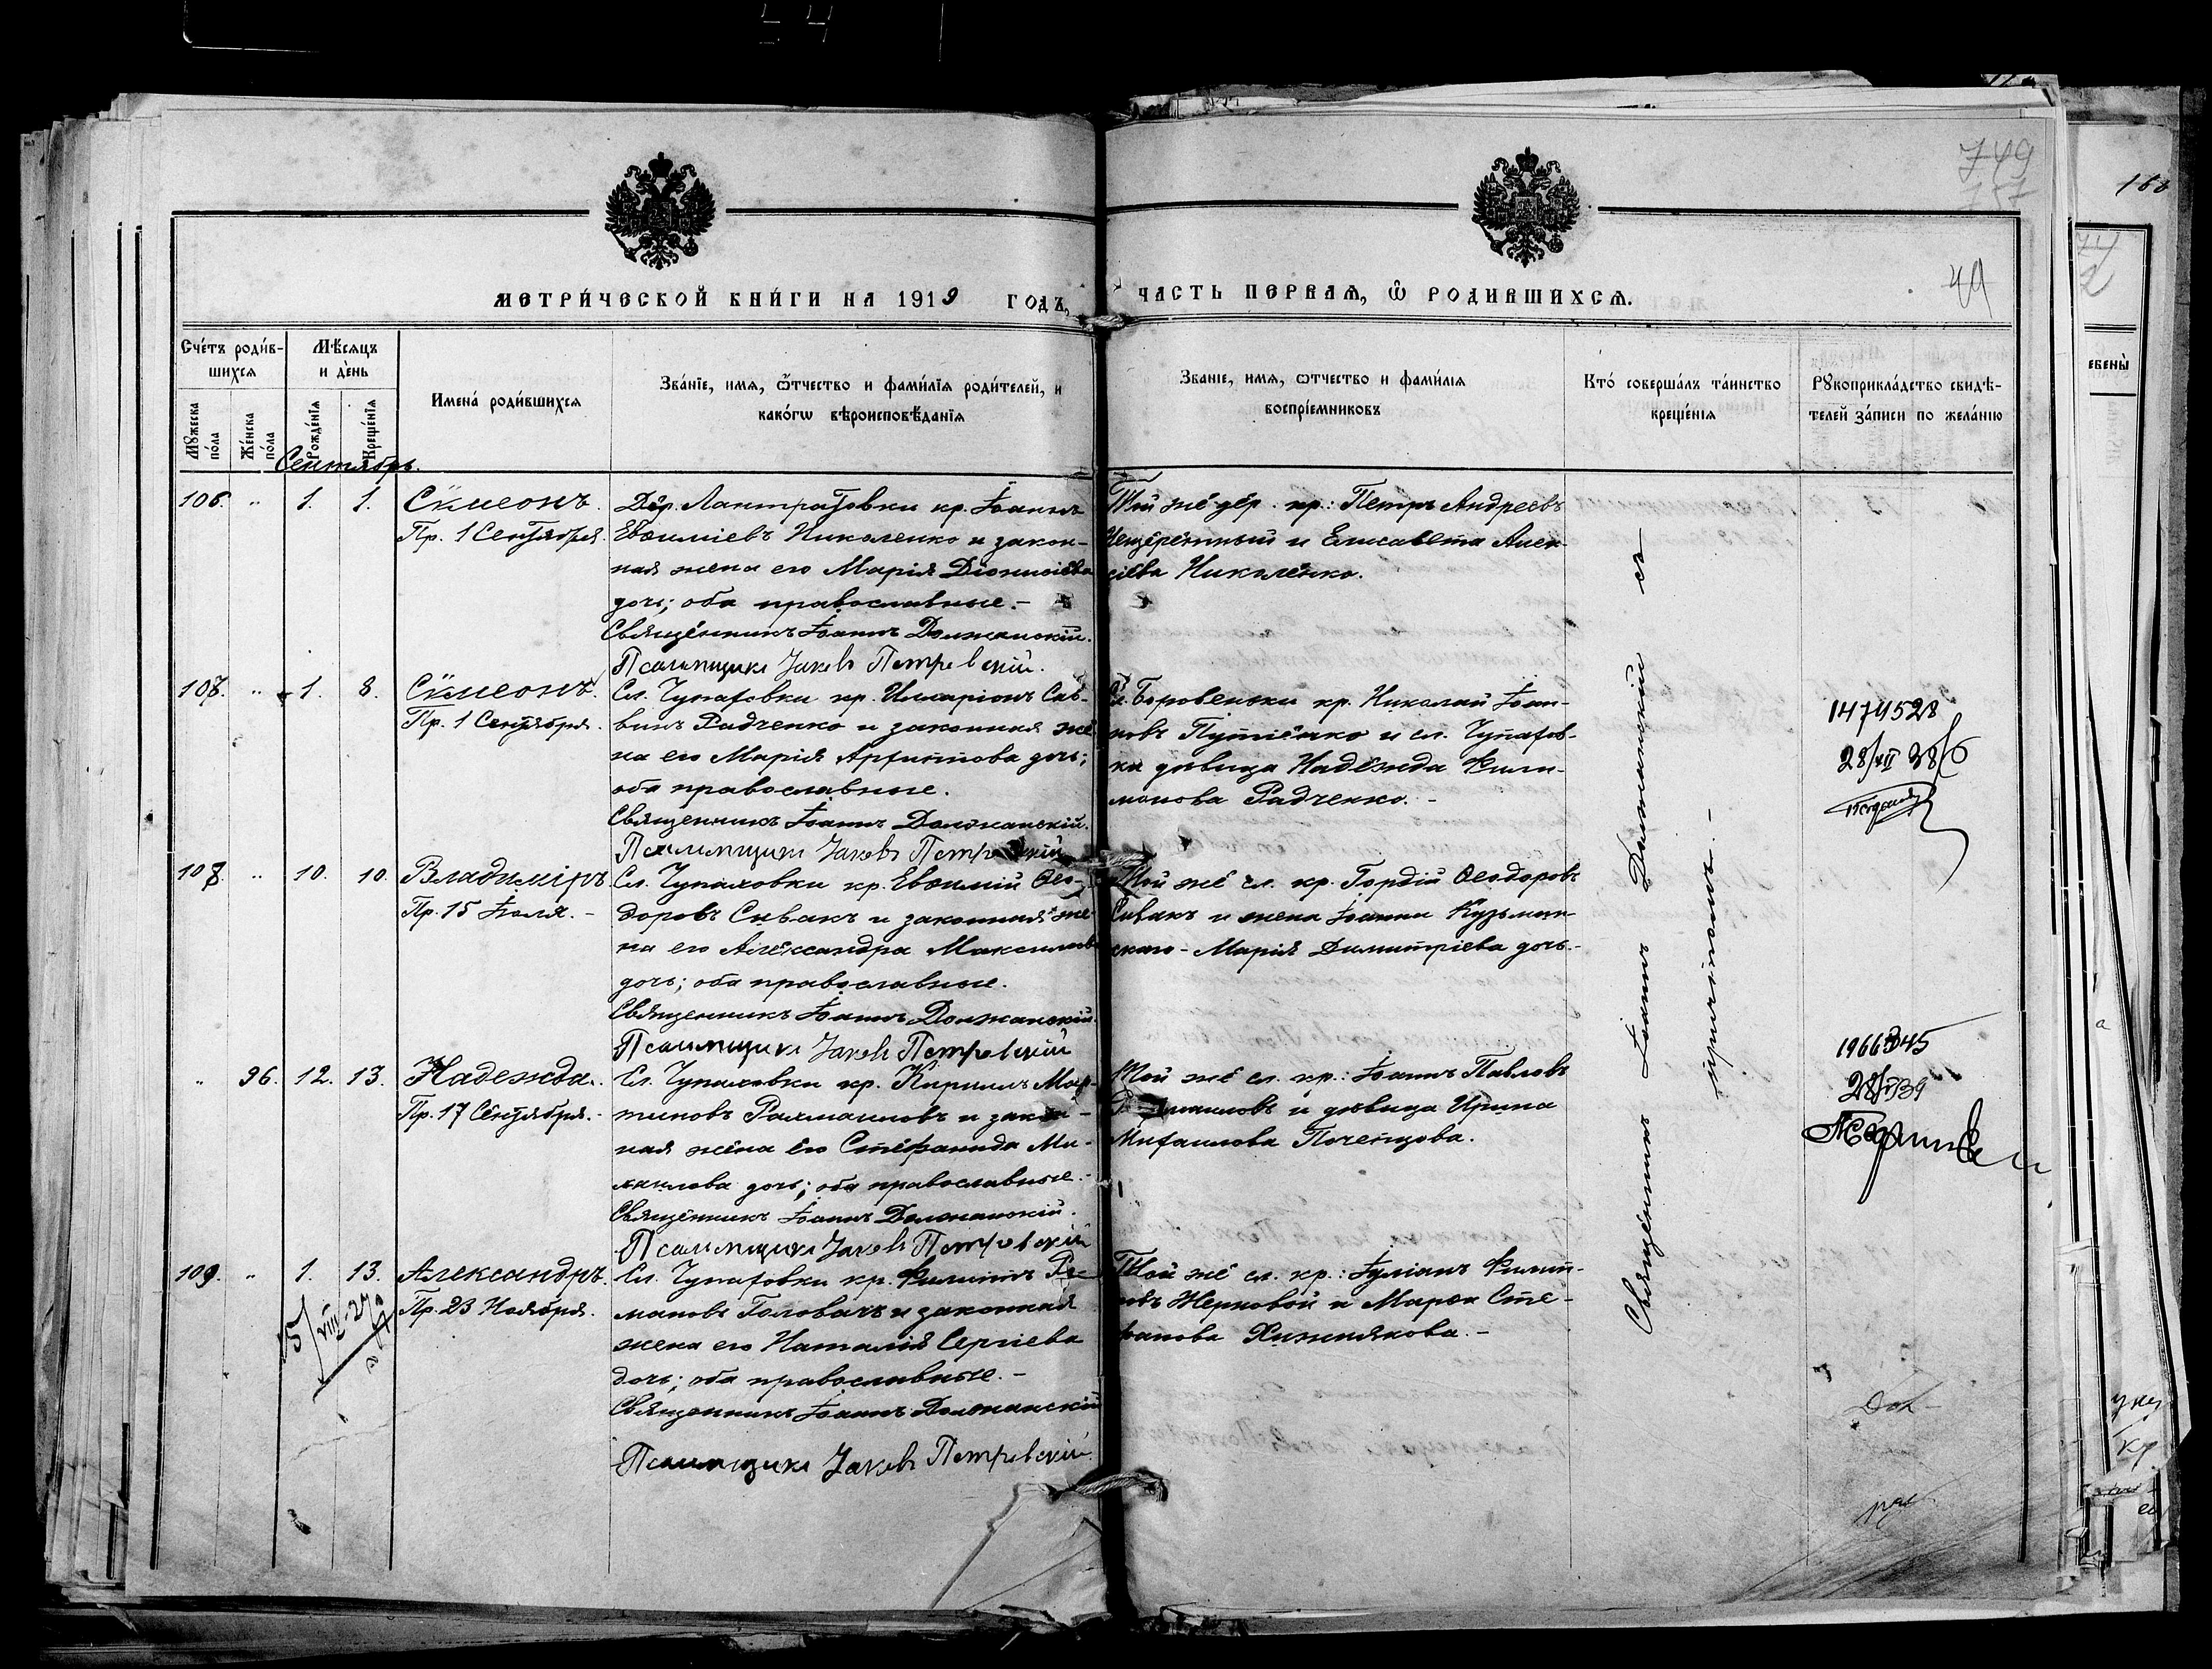 749
49
МЕТРИ́ЧЕСКОЙ КНИ́ГИ НА 1919 ГОДЪ,
ЧАСТЬ ПЕРВАѦ, Ѡ РОДИВШИХСѦ.
Сче́тъ роди́в-
шихсѧ
Мѣ́сѧцъ
и де́нь
Имена́ роди́вшихсѧ
Зва́нїе, имѧ, ѻ́тчество и фами́лїѧ роди́телей, и
како́гѡ вѣроисповѣ́данїѧ
Мꙋжеска
по́ла
Же́нска
по́ла
Рожде́нїѧ
Креще́нїѧ
Зва́нїе, имѧ, ѻтчество и фами́лїѧ
воспрїе́мниковъ
Кто́ соверша́лъ та́инство
креще́нїѧ
Рꙋкоприкла́дство свидѣ́-
телей за́писи по жела́нїю
Сентябрь.
106. " 1. 1. Сѵмеонъ.
Пр. 1 Сентября.
Дер. Лантратовки кр. Іоаннъ
Евѳиміевъ Николенко и закон-
ная жена его Марія Діонисіева
дочь; оба православные.-
Священникъ Іоаннъ Должанскій.
Псаломщикъ Іаковъ Петровскій.
Той же дер. кр.: Петръ Андреевъ
и Елисавета Алек-
сіева Николенко.
107. " 1. 8. Сѵмеонъ.
Пр. 1 Сентября.
Сл. Чупаховки кр. Иларіонъ Сав-
винъ Радченко и законная же-
на его Марія дочь;
оба православные.
Священникъ Іоаннъ Должанскій.
Псаломщикъ Іаковъ Петровскій
Сл. Боровеньки кр. Николай Іоан-
новъ и сл. Чупахов-
ки дѣвица Надежда Фили-
монова Радченко.-
1474528
108. " 10. 10. Владиміръ
Пр. 15 Іюля.-
Сл. Чупаховки кр. Евѳимій Ѳео-
доровъ Сивакъ и законная же-
на его Александра Максимова
дочь; оба православные.
Священникъ Іоаннъ Должанскій.
Псаломщикъ Іаковъ Петровскій
Той же сл. кр. Гордій Ѳеодоровъ
Сивакъ и жена Іоанна Кузьмин-
скаго - Марія Димитріева дочь.-
" 96. 12. 13. Надежда.
Пр. 17 Сентября.-
Сл. Чупаховки кр. Кириллъ Мар-
тиновъ Рахмаиловъ и закон-
ная жена его Стефанида Ми-
хаилова дочь; оба православные.-
Священникъ Іоаннъ Должанскій.
Псаломщикъ Іаковъ Петровскій
Той же сл. кр.: Іоаннъ Павловъ
и дѣвица Ирина
Михаилова Поченцова.
109. " 1. 13. Александръ.
Пр. 23 Ноября.
Сл. Чупаховки кр. Филиппъ Ро-
мановъ Головачъ и законная
жена его Наталія Сергіева
дочь; оба православные.-
Священникъ Іоаннъ Должанскій
Псаломщикъ Іаковъ Петровскій
Той же сл. кр.: Іуліанъ Филип-
повъ Жерновой и Марѳа Сте-
фанова Хижнякова.-
Священникъ Іоаннъ Должанскій съ
причтомъ.-